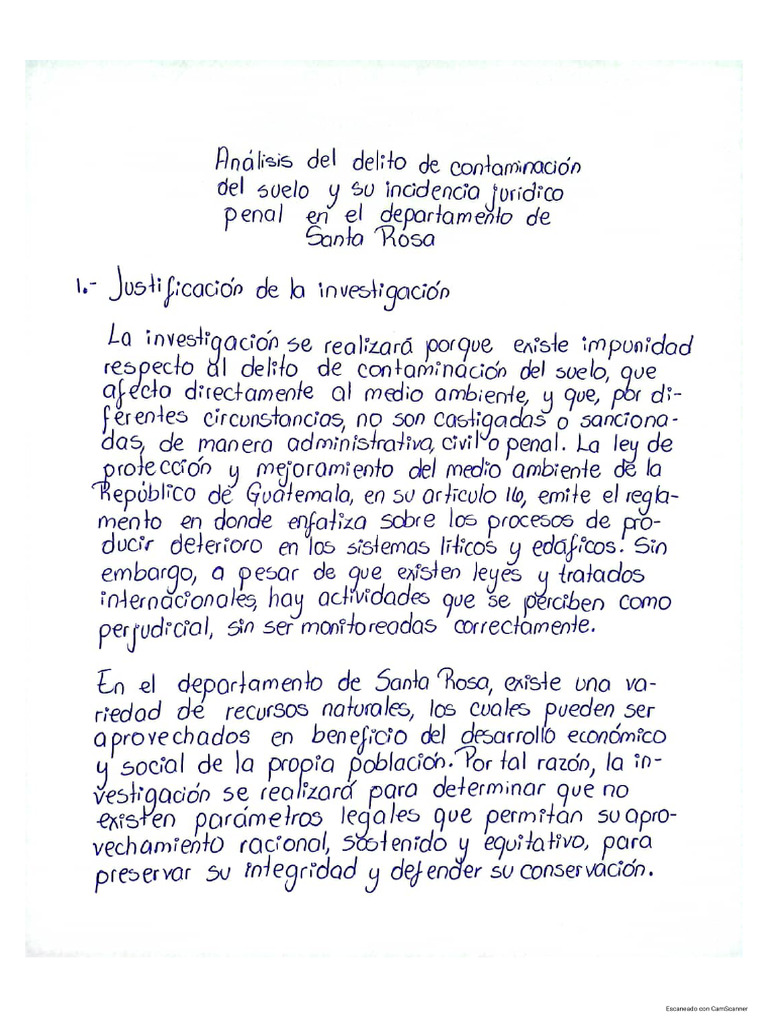 Análisis del delito de contaminación
del suelo y su incidencia jurídico
penal en el departamento de
Santa Rosa
1.- Justificación de la investigación
La investigación se realizará porque existe impunidad
respecto al delito de contaminación del suelo, que
afecta directamente al medio ambiente, y que, por di-
ferentes circunstancias, no son castigadas o sanciona-
das, de manera administrativa, civil o penal. La ley de
protección y mejoramiento del medio ambiente de la
República de Guatemala, en su articulo 16, emite el regla-
mento en donde enfatiza sobre los procesos de pro-
ducir deterioro en los sistemas líticos y edáficos. Sin
embargo, a pesar de que existen leyes y tratados
internacionales, hay actividades que se perciben como
perjudicial, sin ser monitoreadas correctamente.
En el departamento de Santa Rosa, existe una va-
riedad de recursos naturales, los cuales pueden ser
aprovechados en beneficio del desarrollo económico
y social de la propia población. Por tal razón, la in-
vestigación se realizará para determinar que no
existen parámetros legales que permitan su apro-
vechamiento racional, sostenido y equitativo, para
preservar su integridad y defender su conservación.
Escaneado con CamScanner